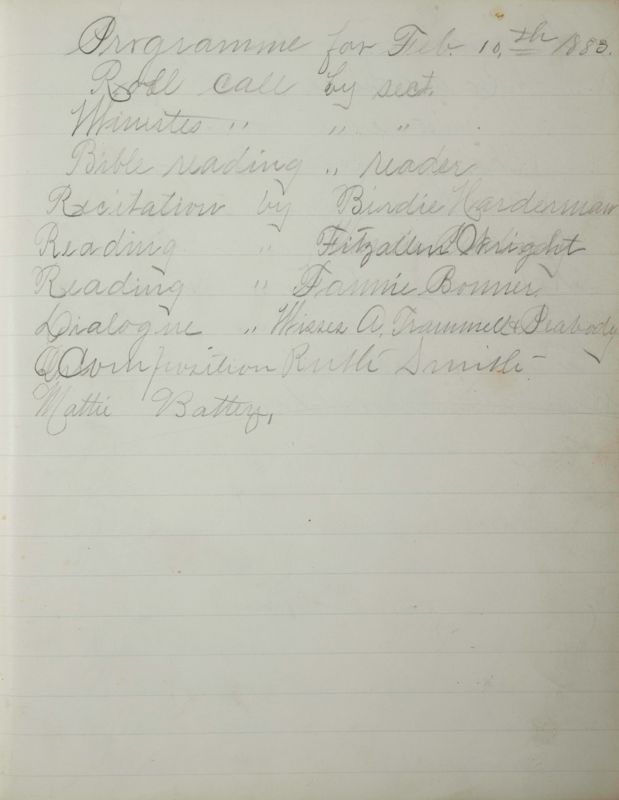 Programme for Feb. 10,th 1883.
Roll call by sect.
Minutes " " "
Bible reading " reader
Recitation by Birdie Harderman
Reading " Fitzallen Wright
Reading " Fannie Bonner
Dialogue " Misses A. Trammell & Peabody
Composition Ruth Smith
Mattie Battey,